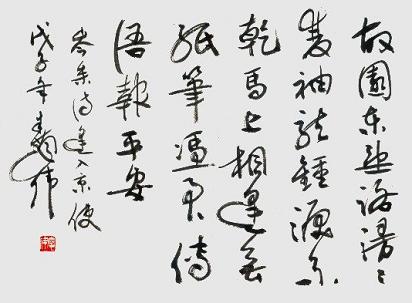 故園東望路漫漫
雙袖龍鍾淚不
乾馬上相逢無
紙筆憑君傳
語報平安
岑參詩逢入京使
戊子年